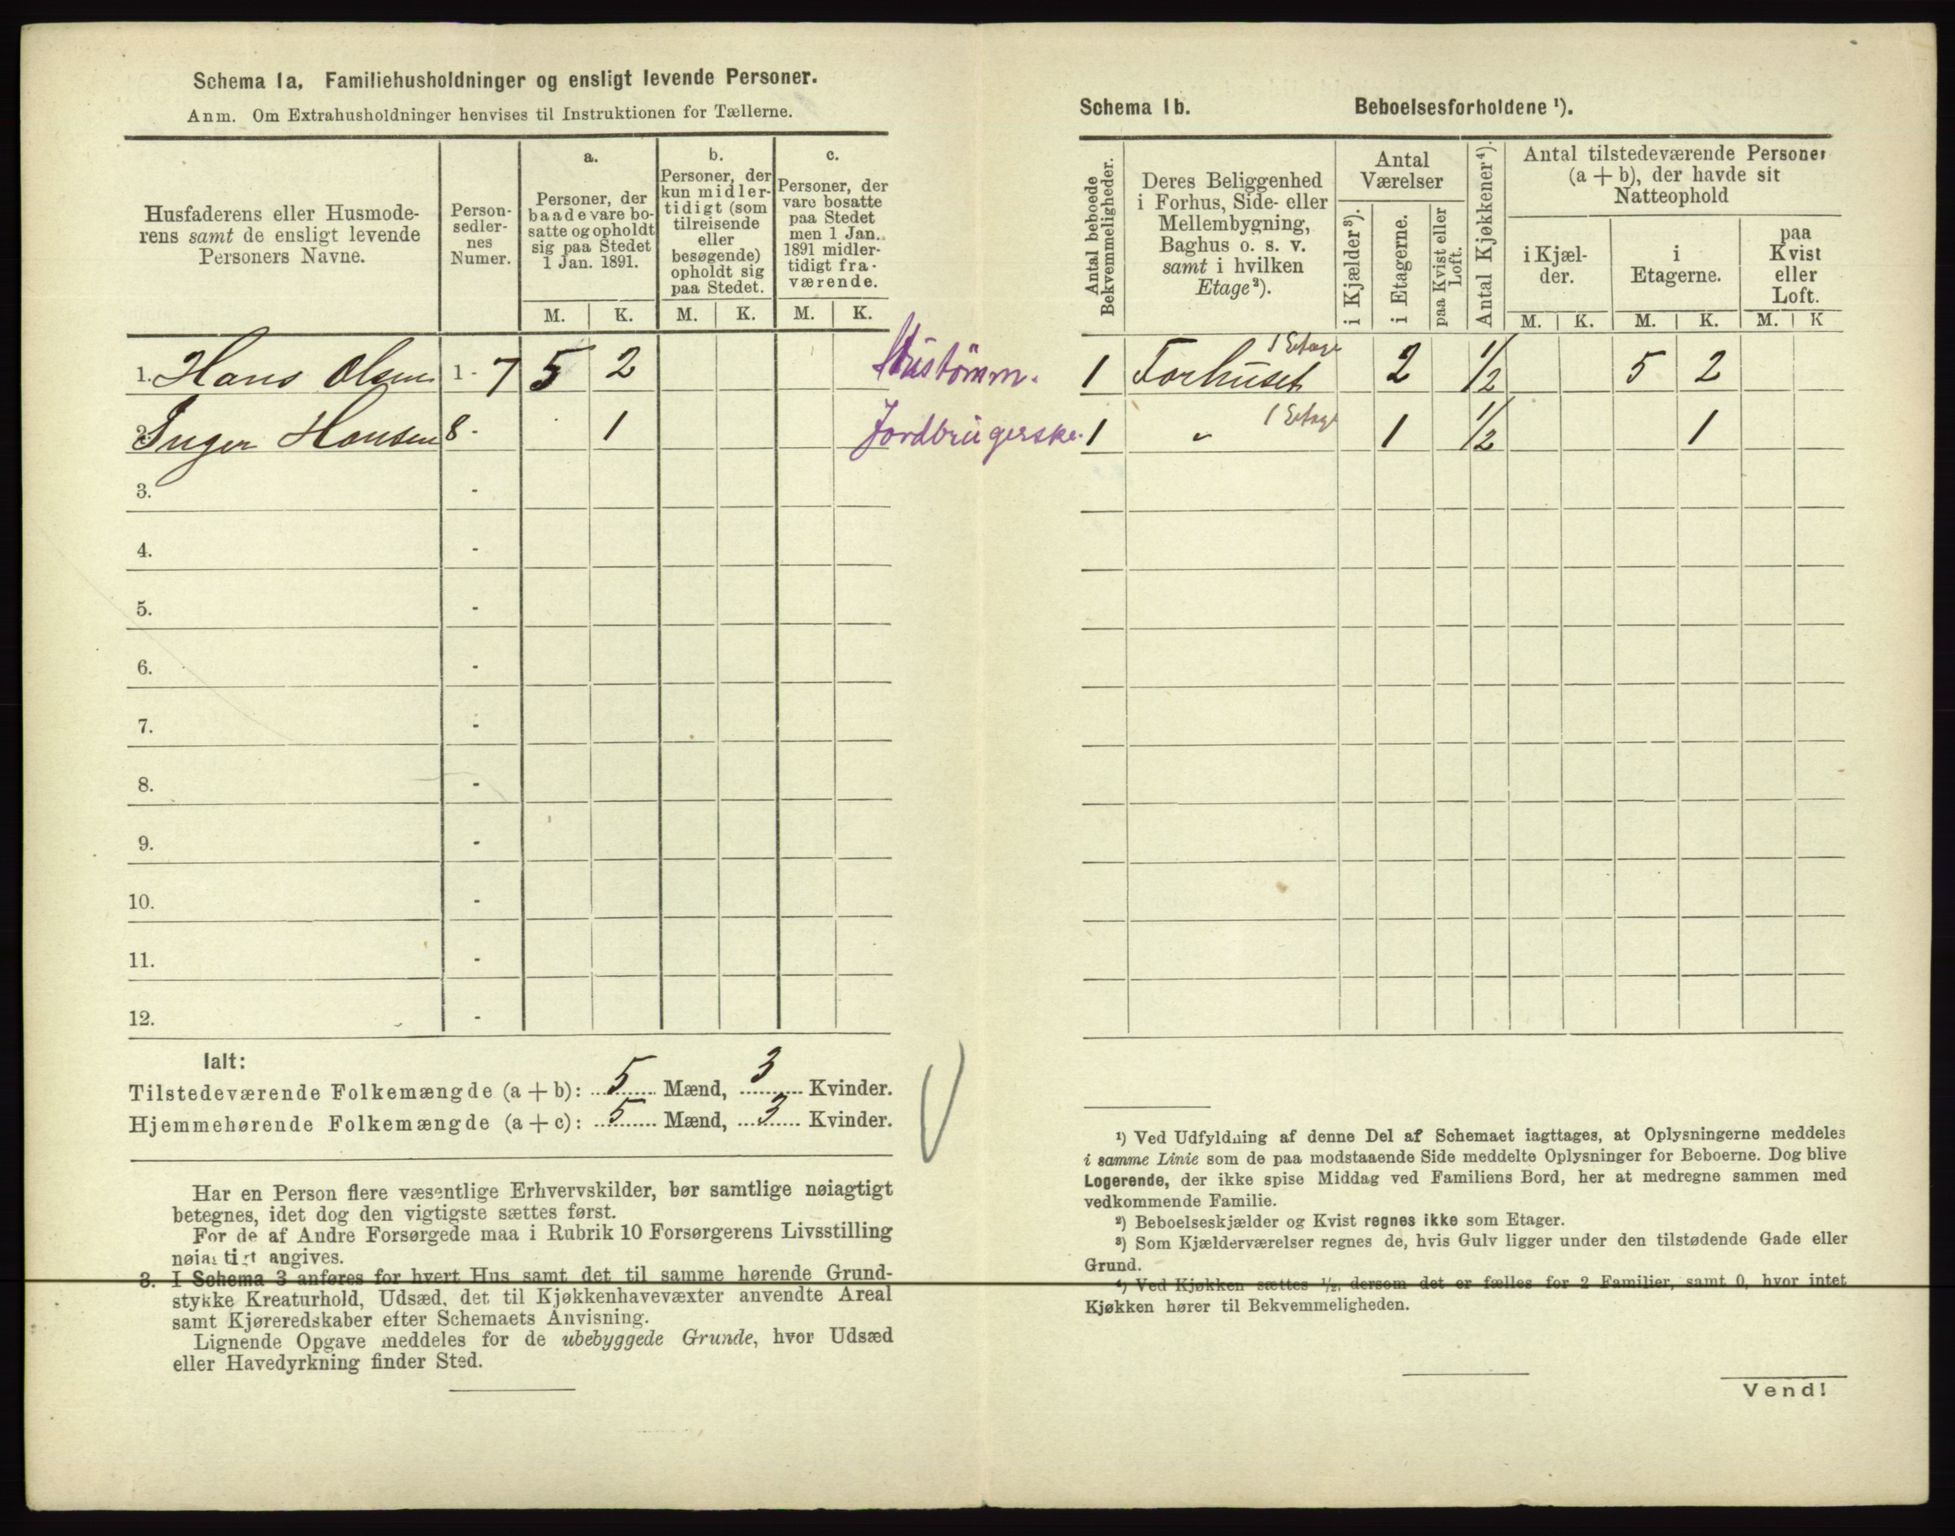 Schema 1a, Familiehusholdninger og ensligt levende Personer.
Anm. Om Extrahusholdninger henvises til Instruktionen for Tællerne.
Husfaderens eller Husmode-
rens samt de ensligt levende
Personers Navne.
Person-
sedler-
nes
Numer.
a.
Personer, der
baade vare bo-
satte og opholdt
sig paa Stedet
1 Jan. 1891.
b.
Personer, der
kun midler-
tidigt (som
tilreisende
eller
besøgende)
opholdt sig
paa Stedet.
c.
Personer, der
vare bosatte
paa Stedet
men 1 Jan.
1891 midler-
tidigt fra-
værende.
M. K. M. K. M. K.
1. Hans Olsen 1 - 7 5 2
2. Inger Hansen 8 - 1 Jordbrugerske.
3. -
4. -
5. -
6. -
7. -
8. -
9. -
10. -
11. -
12. -
Ialt:
Tilstedeværende Folkemængde (a + b): 5 Mænd, 3 Kvinder.
Hjemmehørende Folkemængde (a + c): 5 Mænd, 3 Kvinder.
Har en Person flere væsentlige Erhvervskilder, bør samtlige nøiagtigt
betegnes, idet dog den vigtigste sættes først.
For de af Andre Forsørgede maa i Rubrik 10 Forsørgerens Livsstilling
nøiagtigt angives.
3. I Schema 3 anføres for hvert Hus samt det til samme hørende Grund-
stykke Kreaturhold, Udsæd, det til Kjøkkenhavevæxter anvendte Areal
samt Kjøreredskaber efter Schemaets Anvisning.
Lignende Opgave meddeles for de ubebyggede Grunde, hvor Udsæd
eller Havedyrkning finder Sted.
Schema 1b. Beboelsesforholdene ¹).
Antal beboede
Bekvemmeligheder.
Deres Beliggenhed
i Forhus, Side- eller
Mellembygning,
Baghus o. s. v.
samt i hvilken
Etage²).
Antal
Værelser
i Kjælder³).
i Etagerne.
paa Kvist eller
Loft.
Antal Kjøkkener⁴).
Antal tilstedeværende Personer
(a + b), der havde sit
Natteophold
i Kjæl-
der.
i
Etagerne.
paa
Kvist
eller
Loft.
M. K. M. K. M. K
1 Forhuset 1 Etage 2 1/2 5 2
1 " 1 Etage 1 1/2 1
¹) Ved Udfyldning af denne Del af Schemaet iagttages, at Oplysningerne meddeles
i samme Linie som de paa modstaaende Side meddelte Oplysninger for Beboerne. Dog blive
Logerende, der ikke spise Middag ved Familiens Bord, her at medregne sammen med
vedkommende Familie.
²) Beboelseskjælder og Kvist regnes ikke som Etager.
³) Som Kjælderværelser regnes de, hvis Gulv ligger under den tilstødende Gade eller
Grund.
⁴) Ved Kjøkken sættes ½, dersom det er fælles for 2 Familier, samt 0, hvor intet
Kjøkken hører til Bekvemmeligheden.
Vend!